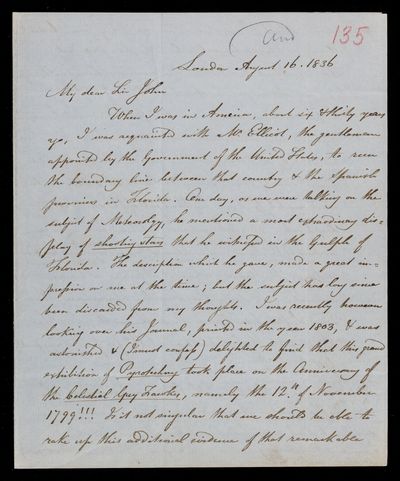 and 135
London August 16. 1836
My dear Sir John
When I was in America, about six & thirty years
ago, I was acquainted with Mr Ellicot, the gentleman
appointed by the Government of the United States, to run
the boundary line between that country & the Spanish
provinces in Florida. One day, as we were talking on the
subject of Meteorology, he mentioned a most extraordinary dis-
play of shooting stars that he witnessed in the Gulph of
Florida. The description which he gave, made a great im-
pression on me at the time; but the subject has long since
been discarded from my thoughts. I was recently however
looking over his Journal, printed in the year 1803, & was
astonished & (I must confess) delighted to find that this grand
exhibition of Pyrotechny took place on the Anniversary of
the Celestial Guy Fawkes, namely the 12th of November
1799!!! Is it not singular that we should be able to
rake up this additional evidence of that remarkable